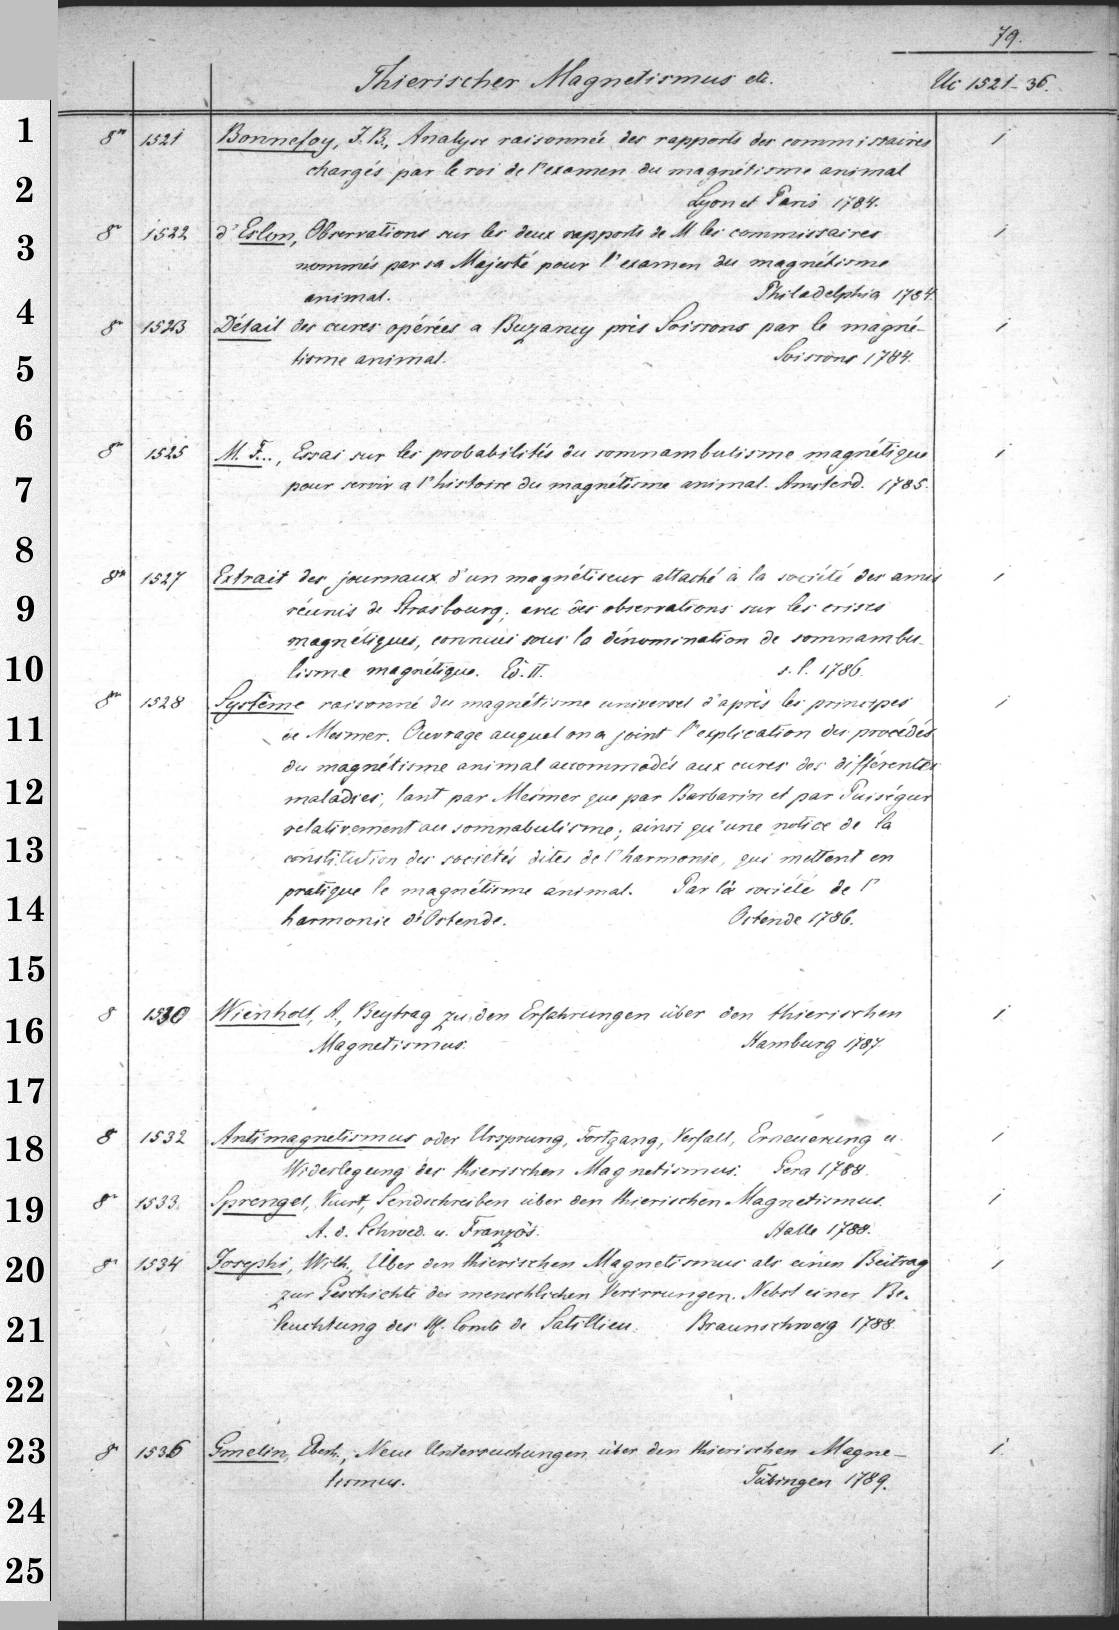 79.
Thierischer Magnetismus etc. Uc 1521-36.
1
8° 1521 Bonnefoy, J. B., Analyse raisonnée des rapports des commissaires 1
chargés par le roi de l'examen du magnétisme animal
2
Lyon et Paris 1784.
3
8° 1522 d'Eslon, Observations sur les deux rapports de M les commissaires 1
nommés par sa Majesté pour l'examen du magnétisme
animal. Philadelphia 1784.
4
8° 1523 Détail des cures opérées a Buzancy près Soissons par le magné- 1
5
tisme animal. Soissons 1784.
6
8° 1525 M. F..., Essai sur les probabilités du somnambulisme magnétique 1
7
pour servir a l'histoire du magnétisme animal. Amsterd. 1785.
8
8° 1527 Extrait des journaux d'un magnétiseur attaché à la société des amis 1
9
réunis de Strasbourg, avec des observations sur les crises
magnétiques, connues sous la dénomination de somnambu-
10
lisme magnétique. Ed. II. s. l. 1786.
8° 1528 Système raisonné du magnétisme universel d'après les principes 1
11
de Mesmer. Ouvrage auquel on a joint l'explication des procédés
du magnétisme animal accommodés aux cures des différentes
12
maladies, tant par Mesmer que par Barbarin et par Puiségur
relativement au somnabulisme; ainsi qu'une notice de la
13
constitution des sociétés dites de l'harmonie, qui mettent en
pratique le magnétisme animal. Par la société de l'
14
harmonie d'Ostende. Ostende 1786.
15
8 1530 Wienholt, A., Beytrag zu den Erfahrungen über den thierischen 1
16
Magnetismus. Hamburg 1787.
17
18
8 1532 Antimagnetismus oder Ursprung, Fortgang, Verfall, Erneuerung u. 1
Widerlegung des thierischen Magnetismus. Gera 1788.
19
8° 1533. Sprengel, Kurt, Sendschreiben über den thierischen Magnetismus. 1
A. d. Schwed. u. Französ. Halle 1788.
20
8° 1534 Josephi, Wilh., Über den thierischen Magnetismus als einen Beitrag 1
zur Geschichte der menschlichen Verirrungen. Nebst einer Be-
21
leuchtung des M. Comte de Satillieu. Braunschweig 1788.
22
23
8° 1536 Gmelin, Eberh., Neue Untersuchungen über den thierischen Magne- 1
tismus. Tübingen 1789.
24
25